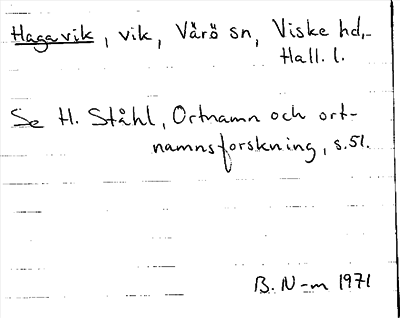 Hagavik, vik, Värö sn, Viske hd,
Hall. l.
Se H. Ståhl, Ortnamn och ort-
namnsforskning, s. 51.
B. N-m 1971